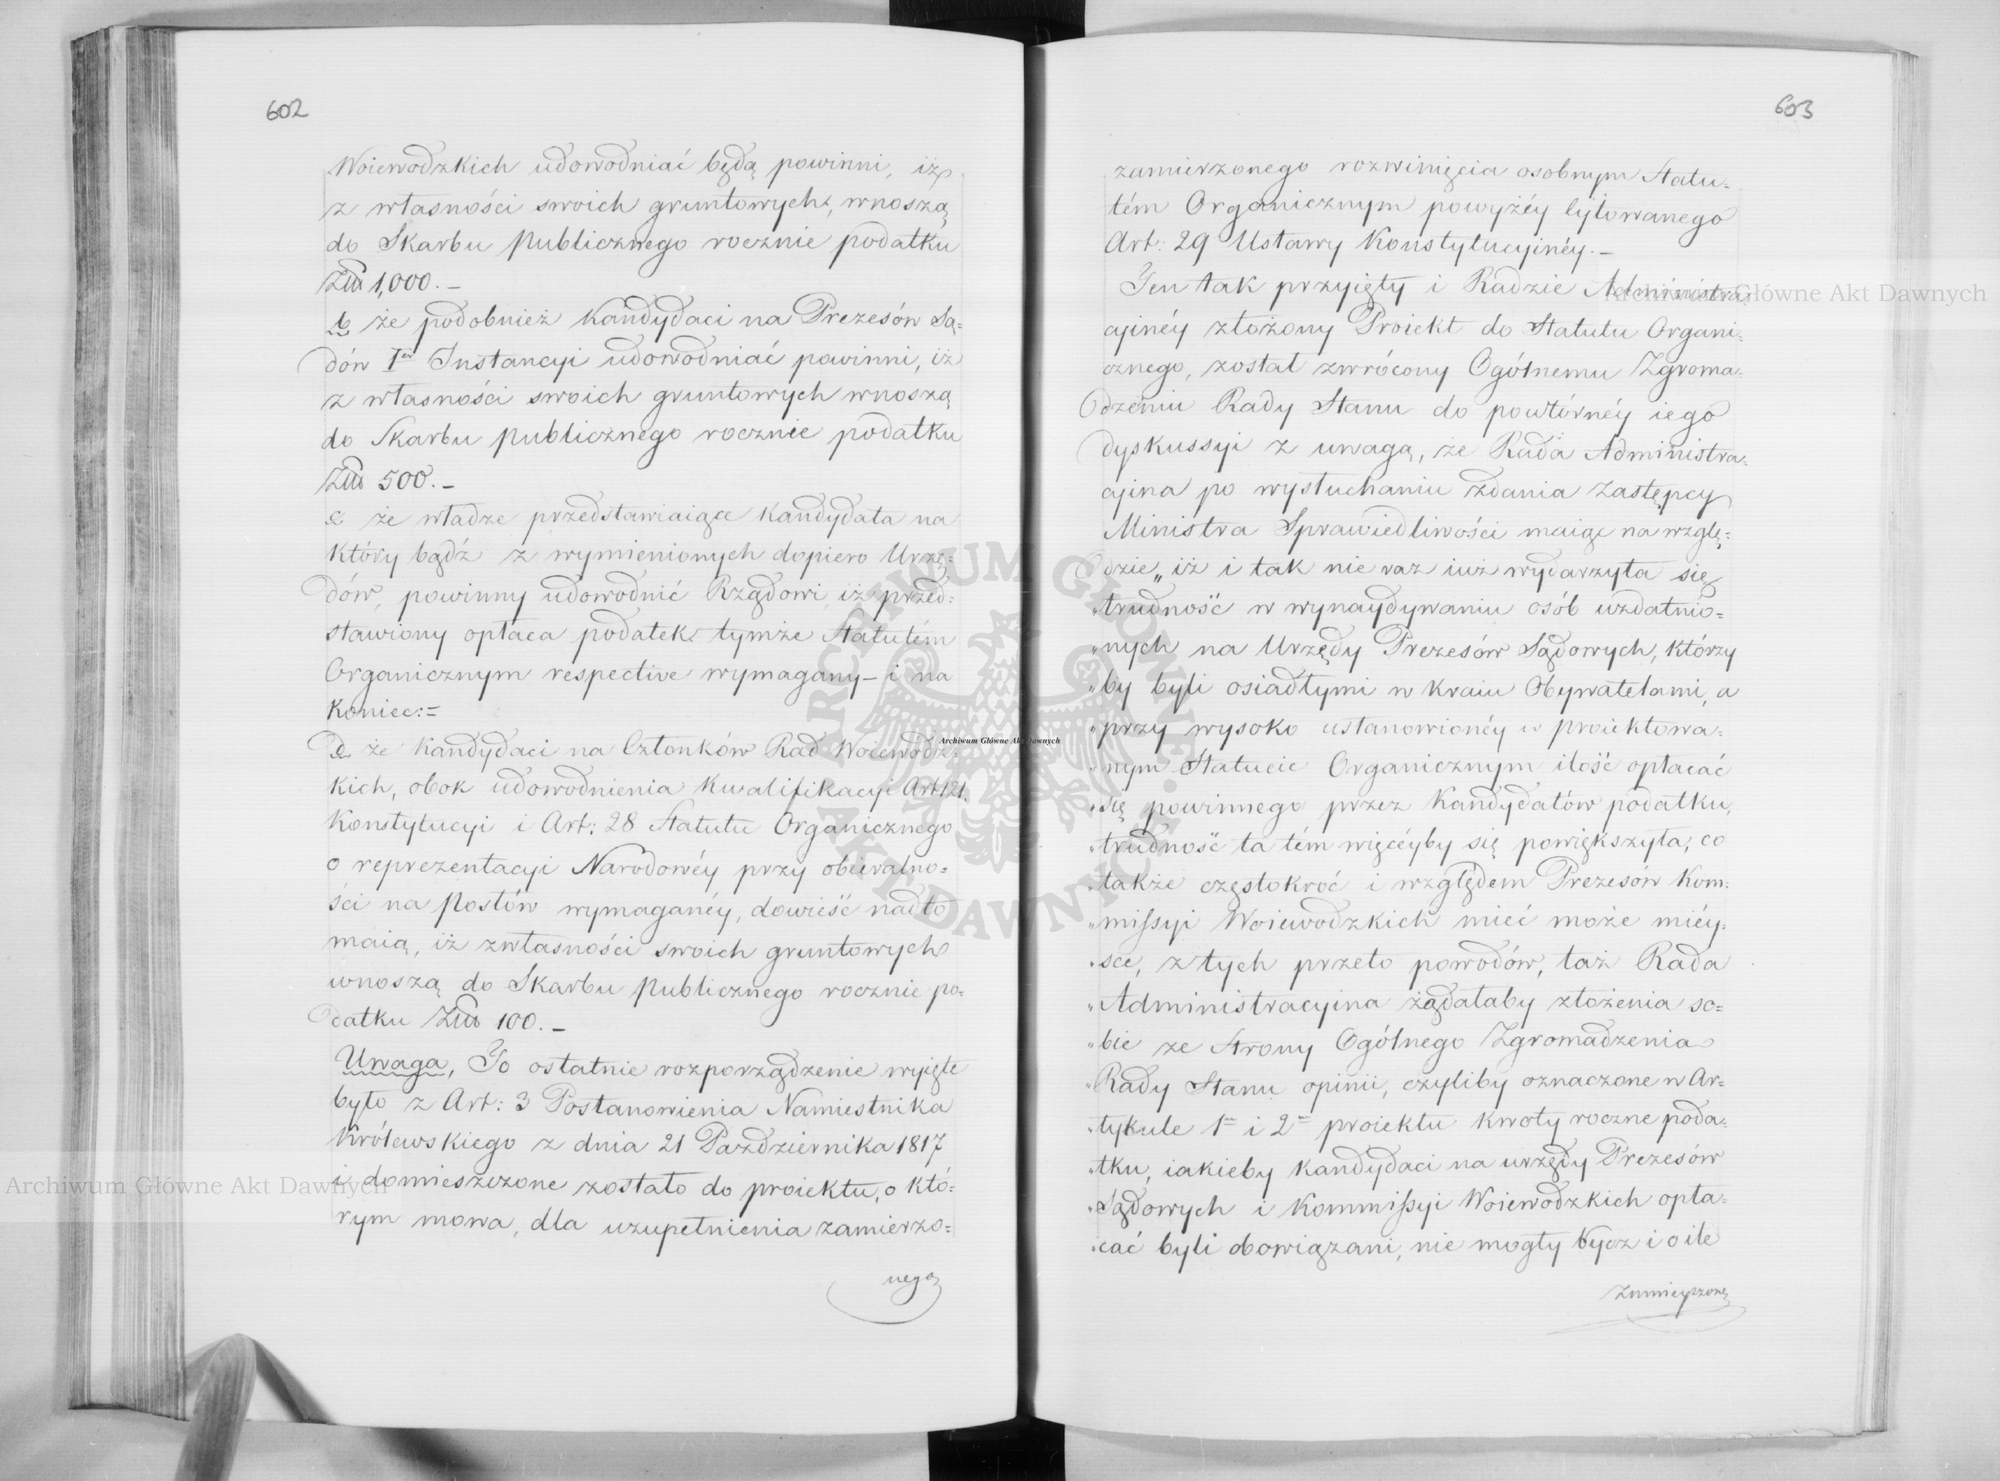 602
Woiewodzkich udowodniać będą powinni, iż
z własności swoich gruntowych, wnoszą
do Skarbu publicznego rocznie podatku
Złł 1,000. –
b że podobnież kandydaci na Prezesów Są=
dów Iéj Instancyi udowodniać powinni, iż
z własności swoich gruntowych wnoszą
do Skarbu publicznego rocznie podatku
Złł 500. –
c że władze przedstawiaiące kandydata na
który bądź z wymienionych dopiero Urzę=
dów, powinny udowodnić Rządowi, iż przed=
stawiony opłaca podatek tymże Statutém
Organicznym respective wymagany – i na
koniec:=
d że kandydaci na Członków Rad Woiewodz=
kich, obok udowodnienia kwalifikacyi Art: 121.
Konstytucyi i Art: 28 Statutu Organicznego
o reprezentacyi Narodowéy przy obieralno=
ści na Posłów wymaganéy, dowieść nadto
maią, iż z własności swoich gruntowych
wnoszą do Skarbu publicznego rocznie po=
datku Złł 100. –
Uwaga, To ostatnie rozporządzenie wyięte
było z Art: 3 Postanowienia Namiestnika
Królewskiego z dnia 21 Października 1817
i domieszczone zostało do proiektu, o któ=
rym mowa, dla uzupełnienia zamierzo=
nego
603
zamierzonego rozwinięcia osobnym Statu=
tém Organicznym powyżéy cytowanego
Art: 29 Ustawy Konstytucyinéy. –
Ten tak przyięty i Radzie Administra=
cyinéy złożony Proiekt do Statutu Organi=
cznego, został zwrócony Ogólnemu Zgroma=
dzeniu Rady Stanu do powtórnéy iego
dyskussyi z uwagą, że Rada Administra=
cyina po wysłuchaniu zdania Zastępcy
Ministra Sprawiedliwości maiąc na wzglę=
dzie „iż i tak nie raz iuż wydarzyła się
„trudność w wynaydywaniu osób uzdatnio=
„nych na Urzędy Prezesów Sądowych, którzy
„by byli osiadłymi w kraiu Obywatelami, a
„przy wysoko ustanowionéy w proiektowa=
„nym Statucie Organicznym ilość opłacać
„się powinnego przez kandydatów podatku,
„trudność ta tém więcéyby się powiększyła, co
„także częstokroć i względem Prezesów Kom=
„missyi Woiewodzkich mieć może miéy=
„sce, z tych przeto powodów, taż Rada
„Administracyina żądałaby złożenia so=
„bie ze strony Ogólnego Zgromadzenia
„Rady Stanu opinii, czyliby oznaczone w Ar=
„tykule 1m i 2m proiektu kwoty roczne poda=
„tku, iakieby kandydaci na urzędy Prezesów
„Sądowych i Kommissyi Woiewodzkich opła=
„cać byli obowiązani, nie mogły bydz i o ile
zmnieyszone
Archiwum Główne Akt Dawnych
Archiwum Główne Akt Dawnych
Archiwum Główne Akt Dawnych
ARCHIWUM GŁÓWNE AKT DAWNYCH